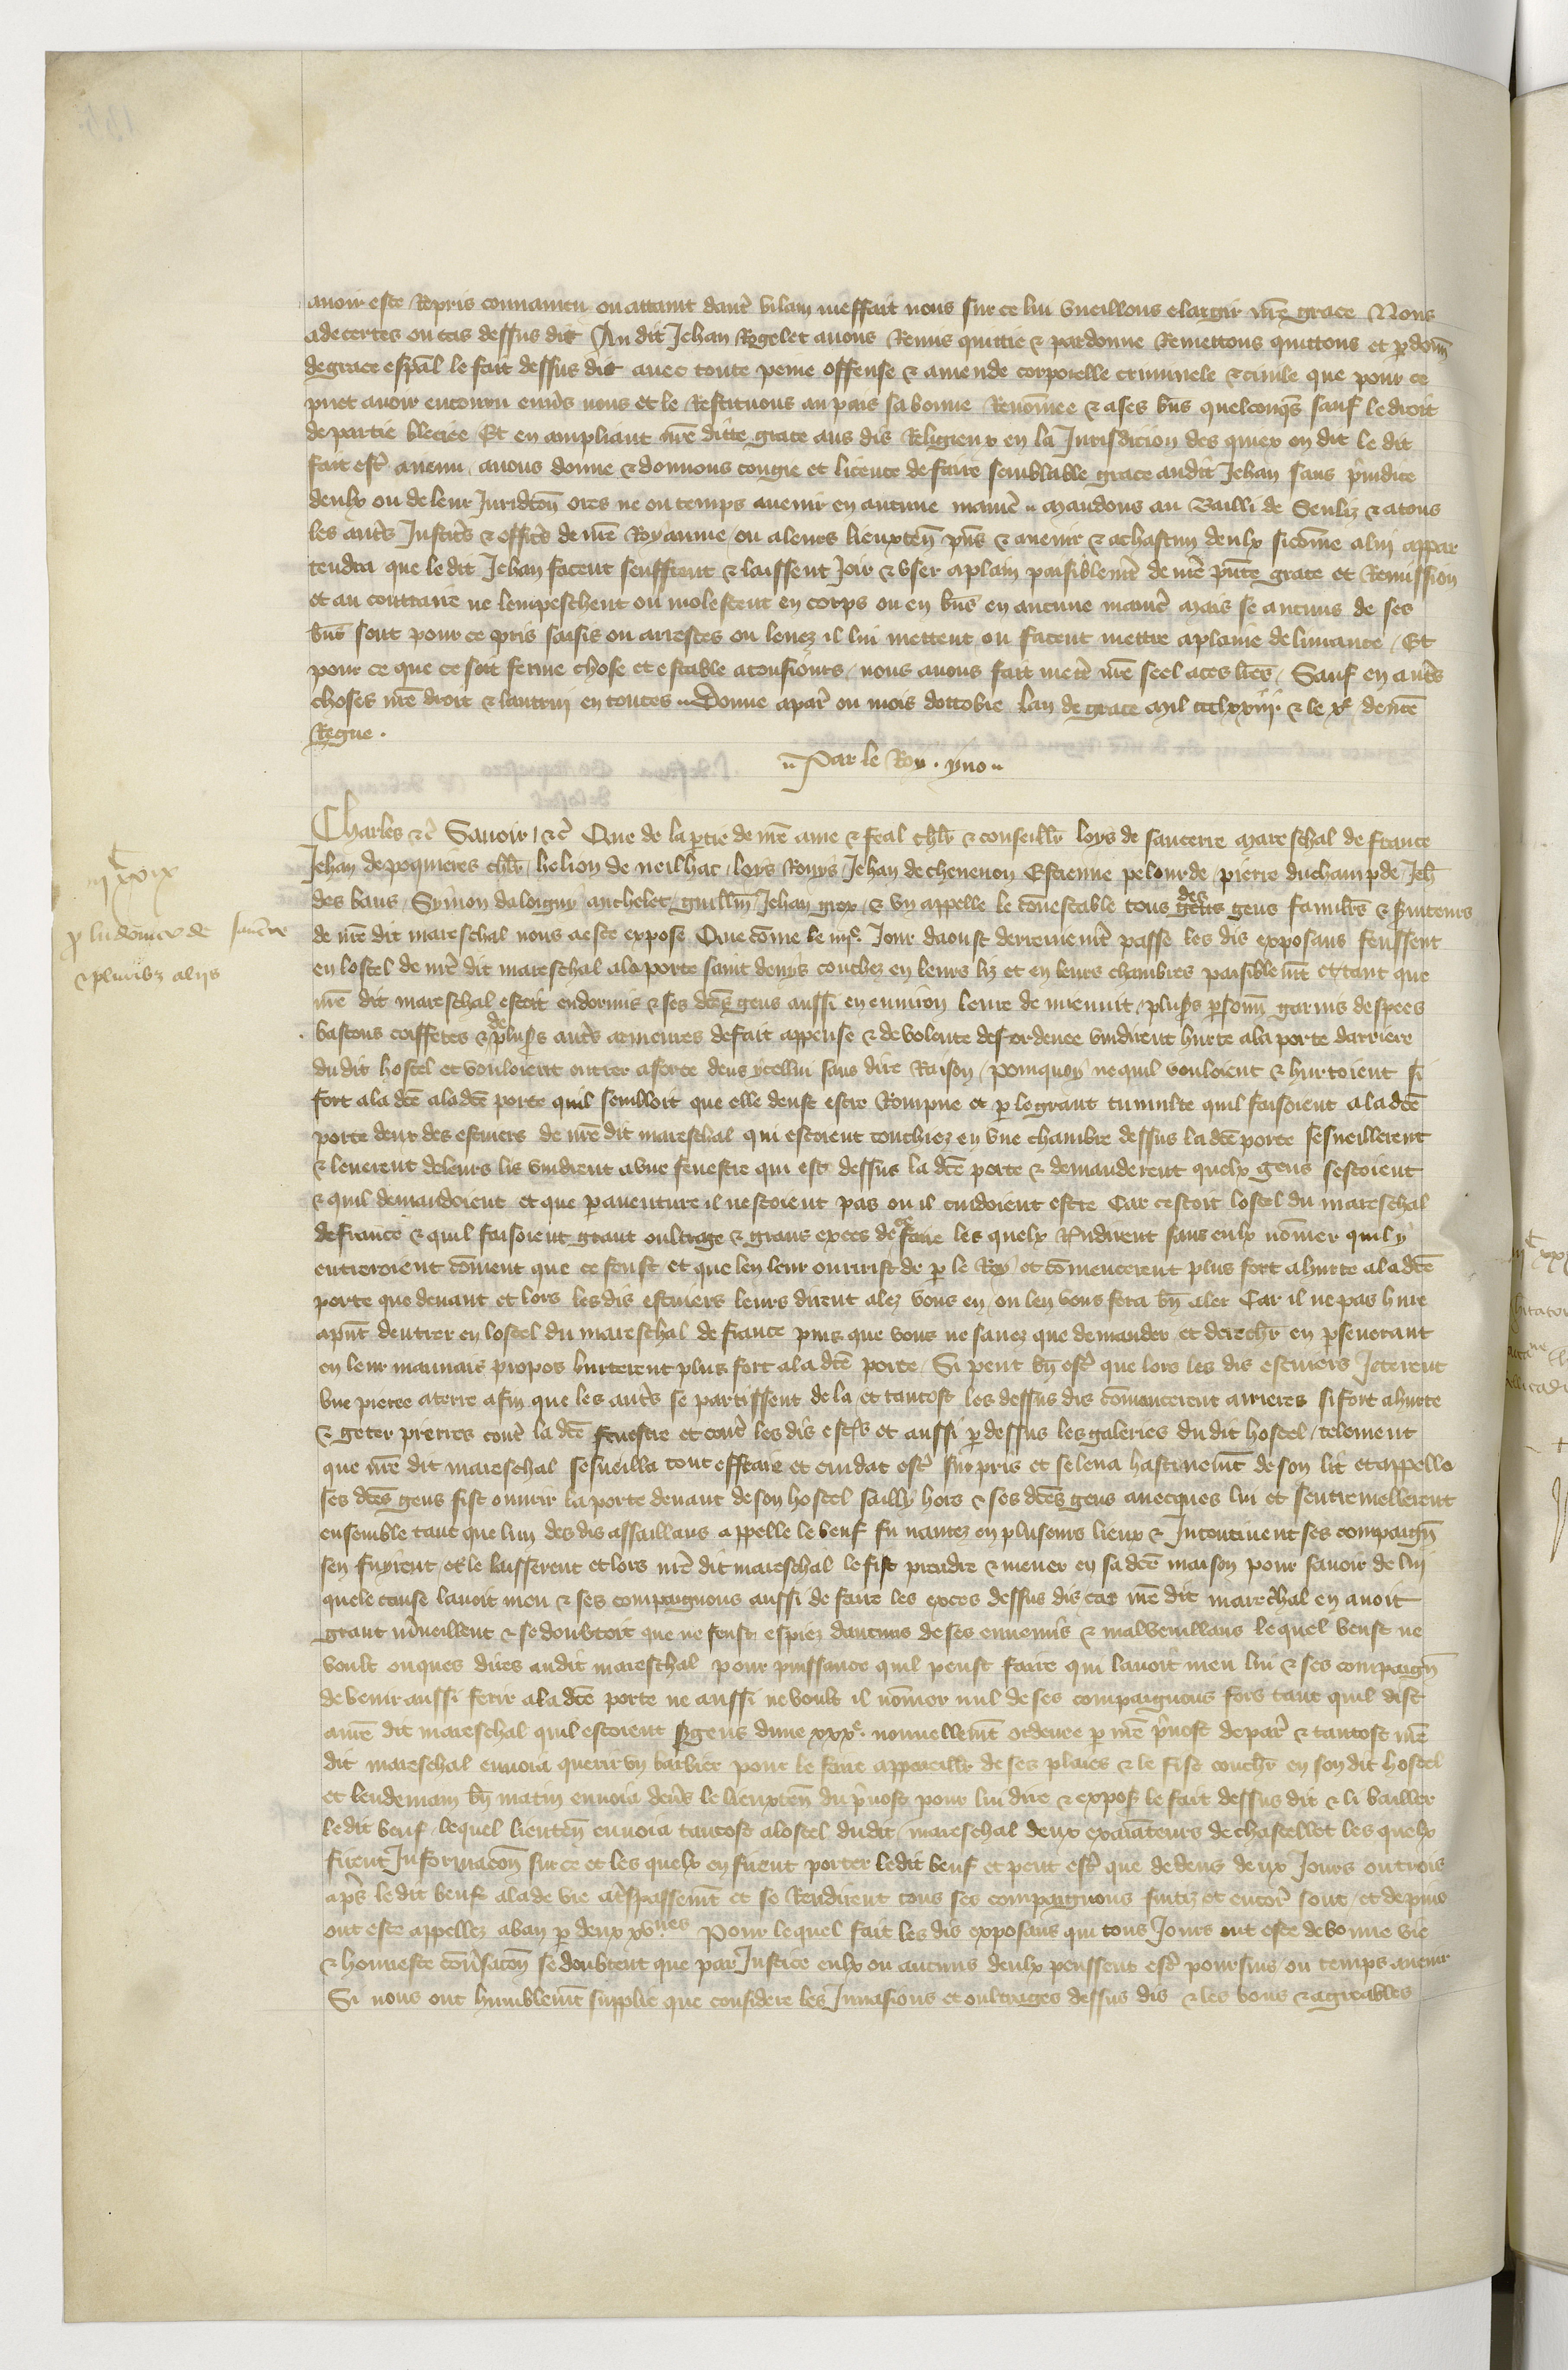 avoir este repris convaincu ou attaint dautre vilain meffait nous sur ce lui vueillons elargir nre grace Nous
adecertes ou cas dessus dit Au dit Jehan Rogelet avons remis quittie & pardonne Remettons quittons et pdonn
de grace espal le fait dessus dit avec toute peine offense & amende corporelle criminele & civile que pour ce
puet avoir encouru envs nous et le restituons au pais sa bonne renomee & a ses bns quelconqs sauf le droit
de partie bleciee Et en ampliant nre ditte grace aus dis Religieux en la Jurisdicion des quiex on dit le dit
fait estre avenu avons donne & donnons congie et licence de faire semblable grace audit Jehan sans piudice
deulx ou de leur Juridcon ores ne ou temps avenir en aucune manie Mandons au Bailli de Senliz & a tous
les autrs Justics & offics de nre Royaume ou a leurs lieuxten pns & avenir & a chascun deulx sicome a lui appar
tendra que le dit Jehan facent seuffrent & laissent Joir & user a plain paisiblemt de nre pnte grace et Remission
et au contraire ne lempeschent ou molestent en corps ou en bns en aucune manie Mais se aucuns de ses
bns sont pour ce pris saisis ou arrestes ou levez il lui mettent ou facent mettre a plaine delivrance Et
pour ce que ce soit ferme chose et estable a tousiours nous avons fait mettre nre seel a ces lres Sauf en autrs
choses nre droit & lautrui en toutes Donne a par ou mois doctobre lan de grace Mil ccclxxiij & le xe de nre
Regne .
Par le Roy . yvo
Charles &c Savoir &c Que de la partie de nre ame & feal chlr & conseillr Loys de Sancerre Mareschal de France
Jehan de poquieres chlr helion de neilhac loys Rouys Jehan de chenevon Estienne pelourde pierre duchampde Jeh
des baus Symon daloigny anchelet guillm Jehan grox & un appelle le conestable tous gens des gens familrs & svitours
de nre dit mareschal nous a este expose Que come le iiije Jour daoust derrenemt passe les dis exposans feussent
en lostel de nre dit mareschal a la porte saint denys couchez en leurs liz et en leurs chambres paisiblemt et tant que
nre dit mareschal estoit endormis & ses dces gens aussi en environ leure de mienuit plusrs psonn garnis despees
bastons coiffetes & de plusrs autrs armeures de fait appense & de volente desordenee vindrent hurte a la porte darriere
du dit hostel et vouloient entrer a force dens ycellui sans dire Raison pourquoy ne quil vouloient & hurtoient si
fort a la dce a la dce porte quil sembloit que elle deust estre Rompue et p le grant tumulte quil faisoient a la dce
porte deux des escuiers de nre dit mareschal qui estoient couchiez en une chambre dessus la dce porte sesveillerent
& leverent de leurs lis vindrent a une fenestre qui est dessus la dce porte & demanderent quelx gens sestoient
& quil demandoient et que paventure il nestoient pas ou il cuidoient estre Car cestoit lostel du mareschal
de france & quil faisoient grant oultrage & grans exces de ce faire les quelx rndirent sans eulx nomer quil y
entreroient coment que ce feust et que len leur ouvrist de p le Roy et comencerent plus fort a hurte a la dce
porte que devant et lors les dis escuiers leurs dirent alez vous en ou len vous fera bn aler Car il ne pas hure
a pnt dentrer en lostel du mareschal de france puis que vous ne savez que demander et derechr en pseverant
en leur mauvais propos hurterent plus fort a la dce porte Si peut bn estre que lors les dis escuiers Jeterent
une pierre a terre afin que les autrs se partissent de la et tantost les dessus dis comencerent arrieres si fort a hurte
& geter pierres contre la dce fenestre et contre les dis escrs et aussi p dessus les galeries du dit hostel telement
que nre dit mareschal sesveilla tout effraie et cuidat estre surpris et se leva hastivemt de son lit et appella
ses dces gens fist ouvrir la porte devant de son hostel sailly hors & ses dces gens avecques lui et sentremellerent
ensemble tant que lun des dis assaillans appelle le beuf fu navrez en plusours lieux & Incontinent ses compaign
sen fuyrent et le laisserent et lors nre dit mareschal le fist prendre & mener en sa dce maison pour savoir de lui
quele cause lavoit meu & ses compaignons aussi de faire les exces dessus dis car nre dit marechal en avoit
grant mveillent & se doubtoit que ne feust espiez daucuns de ses ennemis & malveuillans lequel beuf ne
voult onques dires audit mareschal pour puissance quil peust faire qui lavoit meu lui & ses compaign
de venir aussi ferir a la dce porte ne aussi ne voult il nomer nul de ses compaignons fors tant quil dist
a nre dit mareschal quil estoient Sgens dune xxxe. nouvellemt ordenee p nre pvost de par & tantost nre
dit mareschal envoia querir un barbier pour le faire appareillr de ses plaies & le fist couchr en son dit hostel
et lendemain bn matin envoia devs le lieuxten du pvost pour lui dire & exposr le fait dessus dit & li bailler
le dit beuf lequel lieuten envoia tantost a lostel dudit mareschal deux examateurs de chastellet les quelx
firent Informacon sur ce et les quelx en firent porter le dit beuf et peut estre que dedens deux Jours ou trois
aprs le dit beuf ala de vie a trspassemt et se Rendirent tous ses compaignons fuitiz et encore sont et depuis
ont este appellez a ban p deux xvnes Pour lequel fait les dis exposans qui tous Jours ont este de bonne vie
& honneste convsacon se doubtent que par Justice eulx ou aucuns deulx peussent estre poursuis ou temps avenir
Si nous ont humblemt supplie que considere les Invasions et oultrages dessus dis & les bons & agreables
iijc xxix
p ludovico de sancre
& pluribz aliis